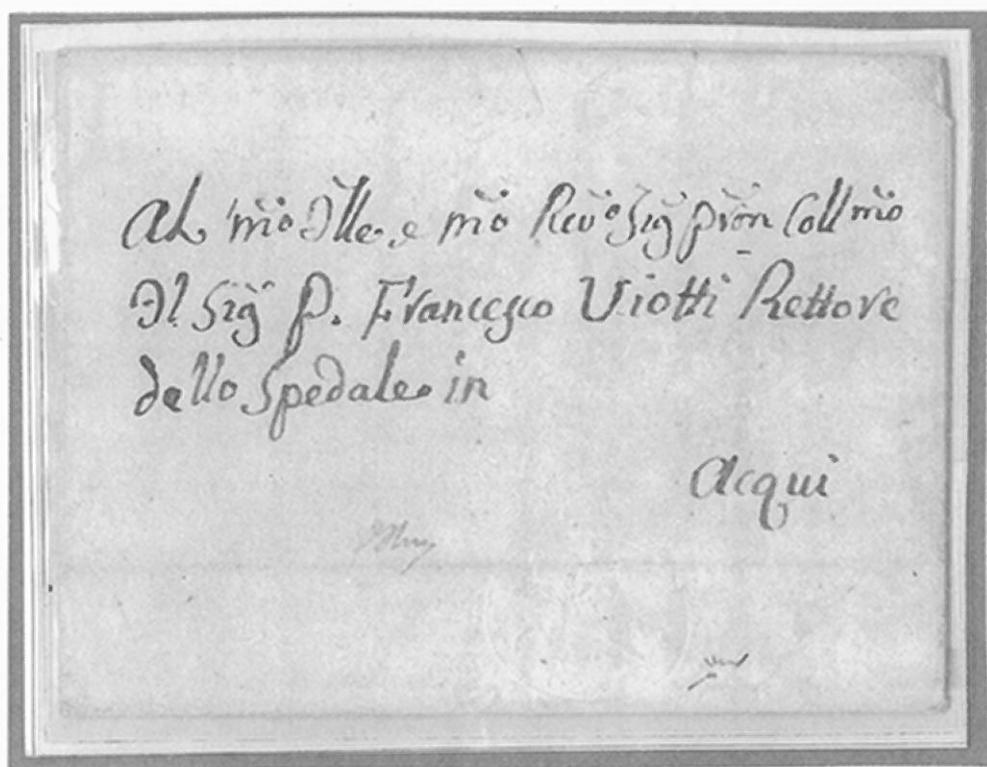 Al m̃o Ille e m̃o Reṽo Sig̃ pr̃on Coll m̃o
Il Sig̃ D. Francesco Viotti Rettore
dello Spedale in
Acqui